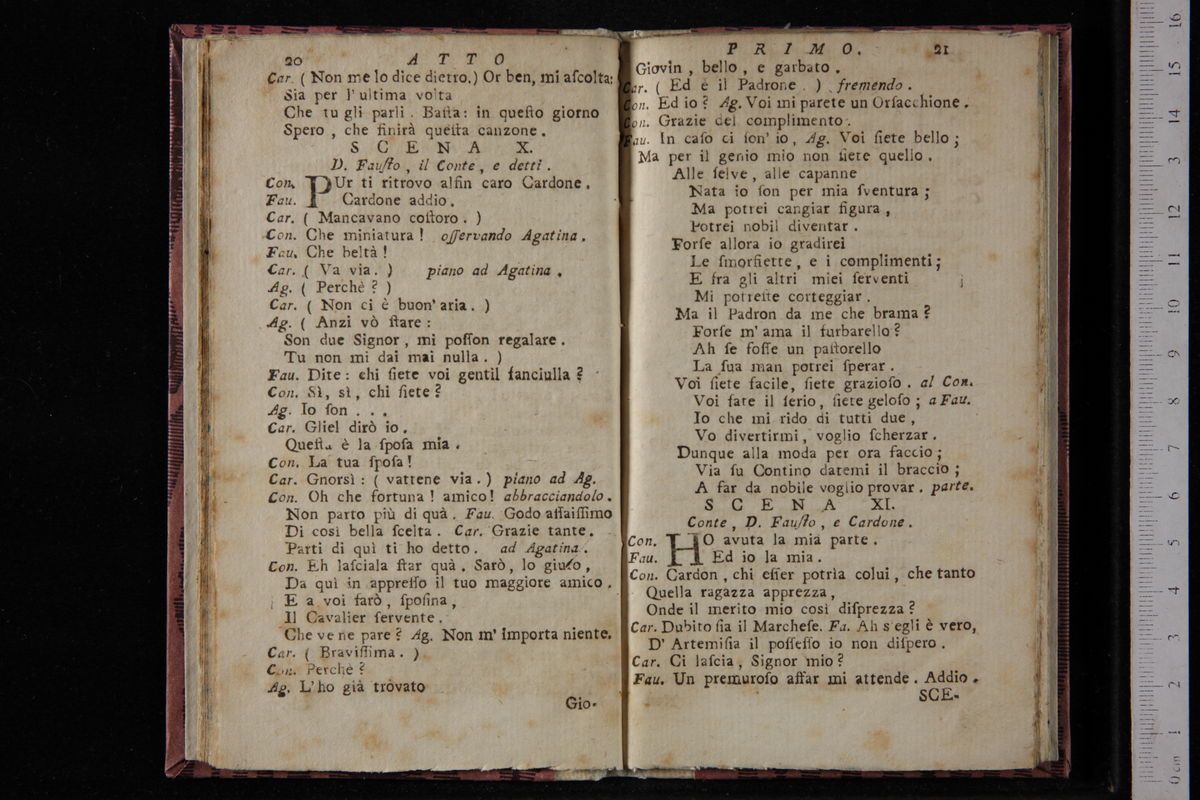 20 ATTO
Car. ( Non me lo dice dietro.) Or ben, mi aſcolta:
Sia per l' ultima volta
Che tu gli parli . Baſta: in queſto giorno
Spero , che finirà queſta canzone .
SCENA X.
D. Fauſto , il Conte , e detti .
Con. PUr ti ritrovo alfin caro Cardone .
Fau. Cardone addio .
Car. ( Mancavano coſtoro . )
Con. Che miniatura ! oſſervando Agatina .
Fau. Che beltà !
Car. ( Va via . ) piano ad Agatina .
Ag. ( Perchè ? )
Car. ( Non ci è buon' aria . )
Ag. ( Anzi vò ſtare :
Son due Signor , mi poſſon regalare .
Tu non mi dai mai nulla . )
Fau. Dite : chi ſiete voi gentil fanciulla ?
Con. Sì, sì, chi ſiete ?
Ag. Io ſon . . .
Car. Gliel dirò io .
Queſta è la ſpoſa mia .
Con. La tua ſpoſa !
Car. Gnorsì : ( vattene via . ) piano ad Ag.
Con. Oh che fortuna ! amico ! abbracciandolo .
Non parto più di quà . Fau. Godo aſſaiſſimo
Di così bella ſcelta . Car. Grazie tante .
Parti di quì ti ho detto . ad Agatina .
Con. Eh laſciala ſtar quà . Sarò , lo giuſo ,
Da quì in appreſſo il tuo maggiore amico .
E a voi ſarò , ſpoſina ,
Il Cavalier ſervente .
Che ve ne pare ? Ag. Non m' importa niente.
Car. ( Braviſſima . )
Con. Perchè ?
Ag. L' ho già trovato
Gio-
PRIMO. 21
Giovin , bello , e garbato .
Car. ( Ed è il Padrone . ) fremendo .
Con. Ed io ? Ag. Voi mi parete un Orſacchione .
Con. Grazie del complimento .
Fau. In caſo ci ſon' io , Ag. Voi ſiete bello ;
Ma per il genio mio non ſiete quello .
Alle ſelve , alle capanne
Nata io ſon per mia ſventura ;
Ma potrei cangiar figura ,
Potrei nobil diventar .
Forſe allora io gradirei
Le ſmorſiette , e i complimenti ;
E fra gli altri miei ſerventi
Mi potreſte corteggiar .
Ma il Padron da me che brama ?
Forſe m' ama il furbarello ?
Ah ſe foſſe un paſtorello
La ſua man potrei ſperar .
Voi ſiete facile, ſiete grazioſo . al Con.
Voi fate il ſerio, ſiete geloſo ; a Fau.
Io che mi rido di tutti due ,
Vo divertirmi , voglio ſcherzar .
Dunque alla moda per ora faccio ;
Via ſu Contino datemi il braccio ;
A far da nobile voglio provar . parte.
SCENA XI.
Conte , D. Fauſto , e Cardone .
Con. HO avuta la mia parte .
Fau. Ed io la mia .
Con. Cardon , chi eſſer potria colui , che tanto
Quella ragazza apprezza ,
Onde il merito mio così diſprezza ?
Car. Dubito ſia il Marcheſe. Fa. Ah s'egli è vero,
D' Artemiſia il poſſeſſo io non diſpero .
Car. Ci laſcia , Signor mio ?
Fau. Un premuroſo affar mi attende . Addio .
SCE-